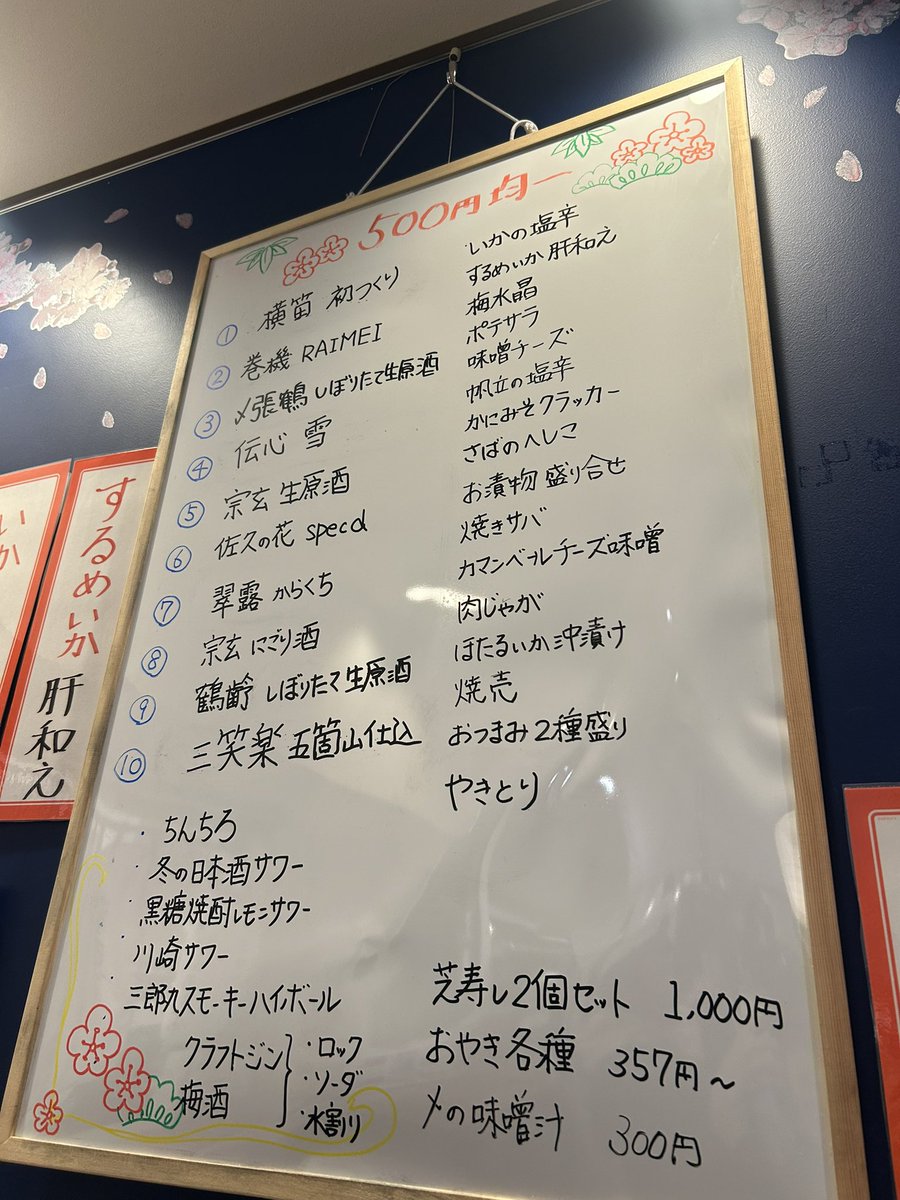 500円均一
① 横笛 初つくり
② 巻機 RAIMEI
③ 〆張鶴 しぼりたて生原酒
④ 伝心 雪
⑤ 宗玄 生原酒
⑥ 佐久の花 specd
⑦ 翠露 からくち
⑧ 宗玄 にごり酒
⑨ 鶴齢 しぼりたて生原酒
⑩ 三笑楽 五箇山仕込
・ちんちろ
・冬の日本酒サワー
・黒糖焼酎レモンサワー
・川崎サワー
・三郎丸スモーキーハイボール
クラフトジン
梅酒
・ロック
・ソーダ
・水割り
・いかの塩辛
するめいか 肝和え
梅水晶
ポテサラ
味噌チーズ
帆立の塩辛
かにみそクラッカー
さばのへしこ
お漬物 盛り合せ
焼きサバ
カマンベールチーズ味噌
肉じゃが
ほたるいか沖漬け
焼売
おつまみ2種盛り
やきとり
芝寿し2個セット 1,000円
おやき各種 357円～
〆の味噌汁 300円
するめいか 肝和え
いか